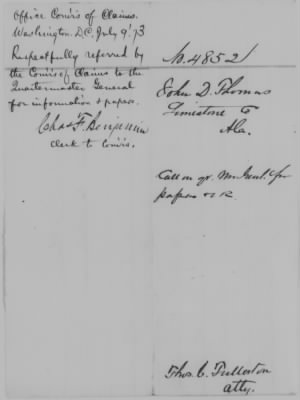 Office Com'rs of Claims.
Washington. D.C. July 9' 73
Respectfully referred by
the Com'rs of Claims to the
Quartermaster General
for information & papers.
Chas F. Benjamin
Clerk to Com'rs.
No. 4852
John D. Thomas
Limestone Co
Ala.
Call on qr. Mr Genl. for
papers &c
Thos. C. Fullerton
Atty.